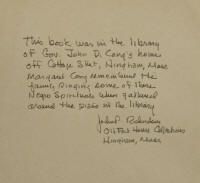 This book was in the library
of Gov. John D. Long's home
off Cottage Street, Hingham, Mass
Margaret Long remembered the
family singing some of these
Negro Spirituals when gathered
around the piano in the library
John P. Richardson
Old Fort House Collections
Hingham, Mass